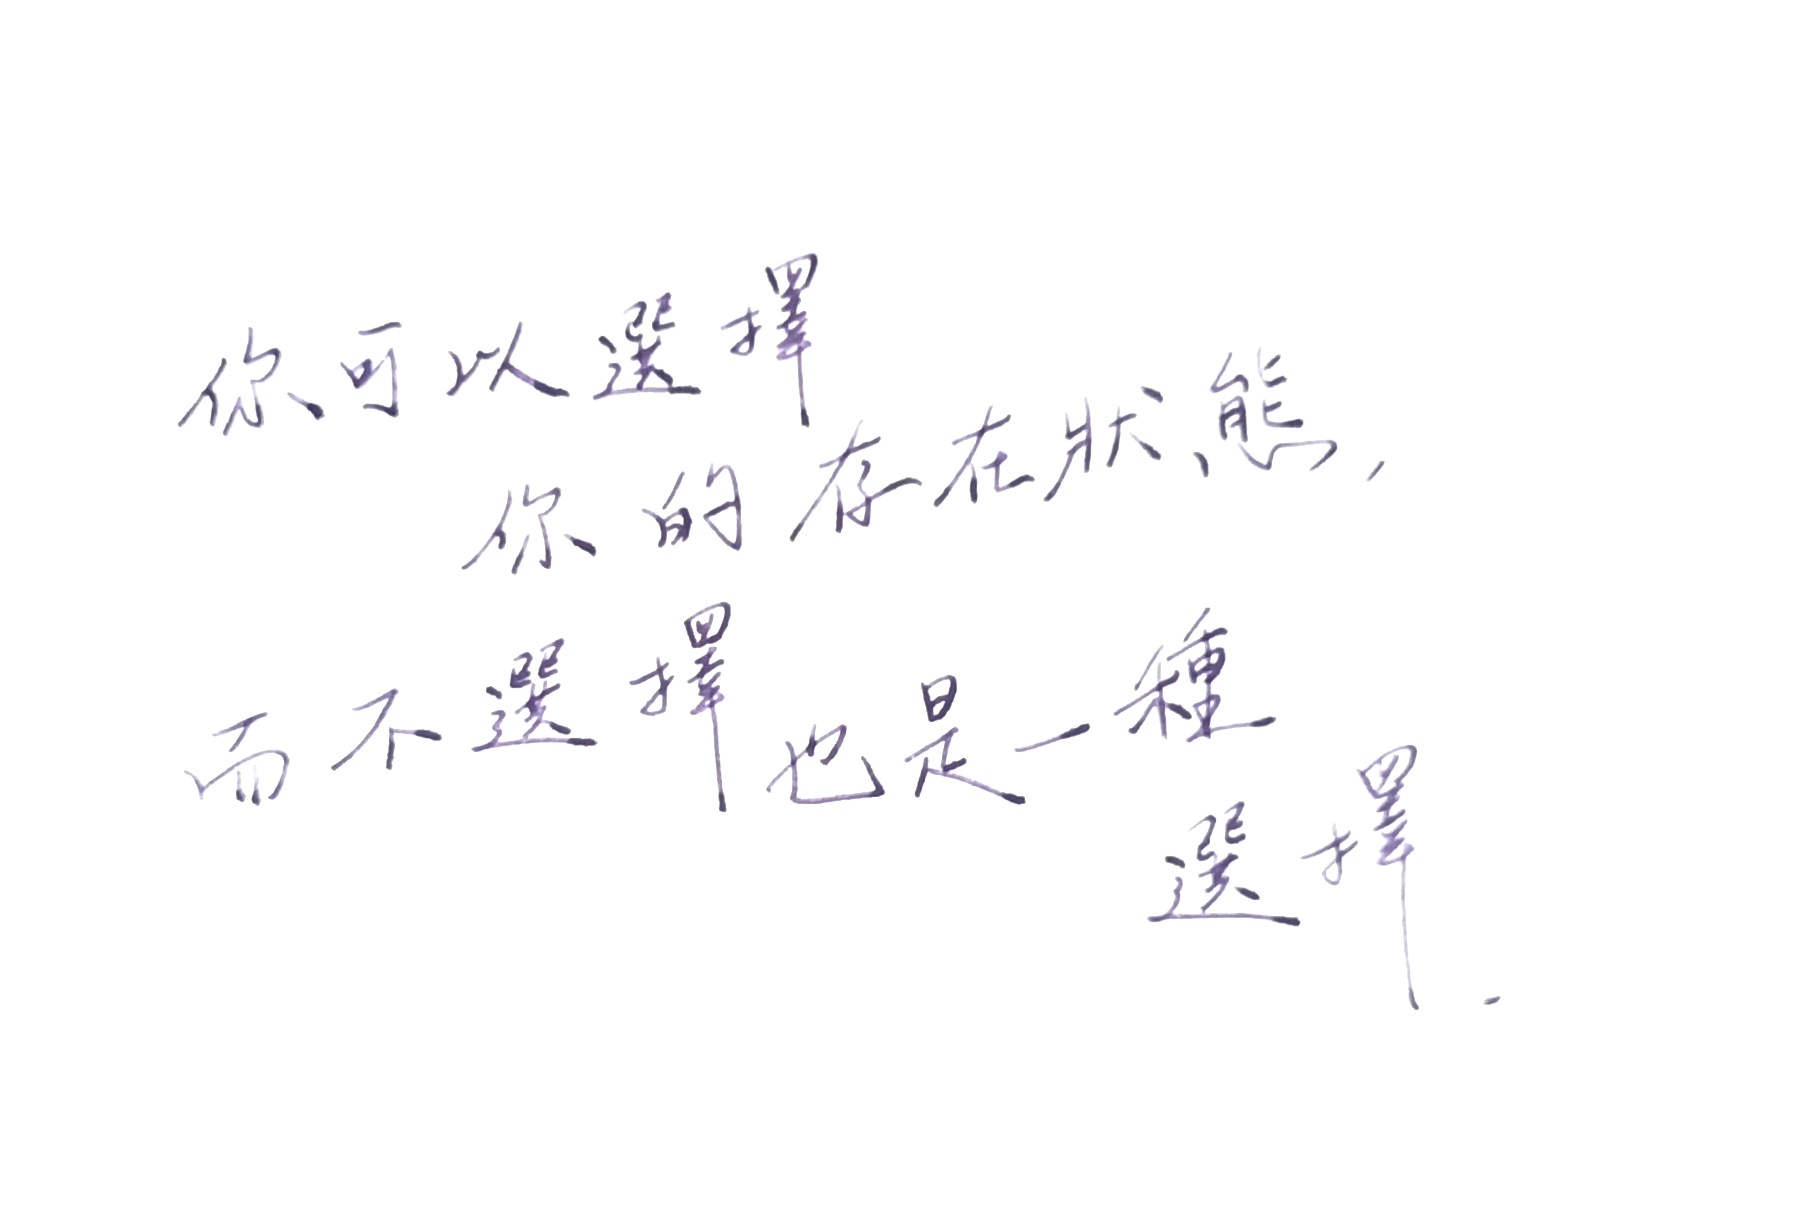 你可以選擇
你的存在狀態,
而不選擇也是一種
選擇.